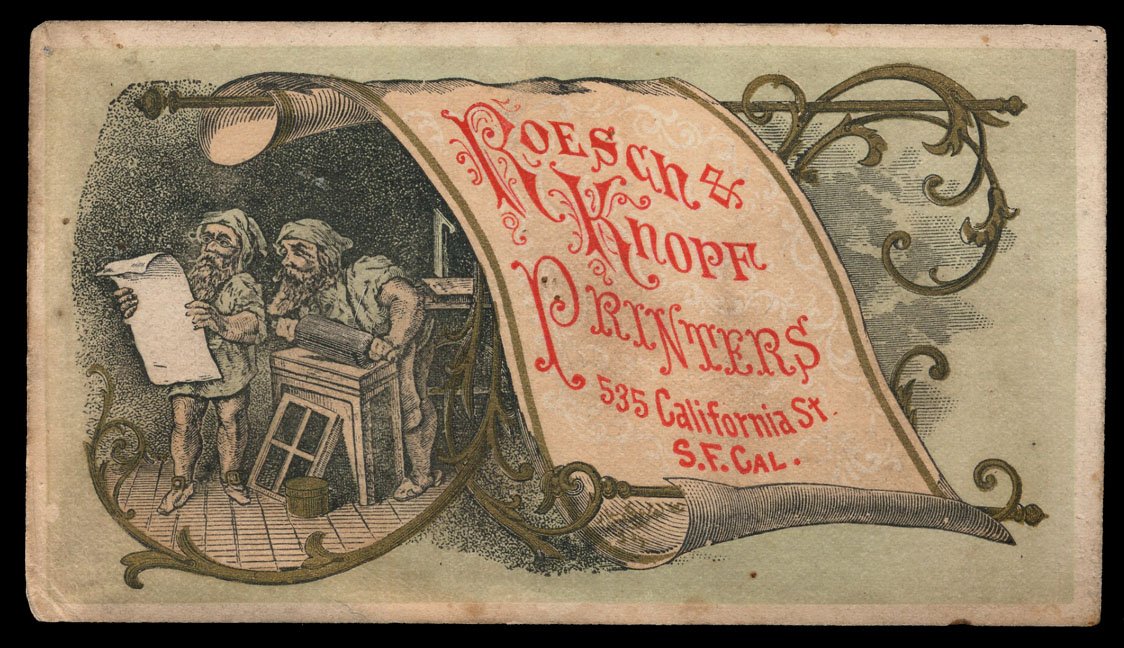 Roesch &
Knopf
Printers
535 California St.
S.F. Cal.